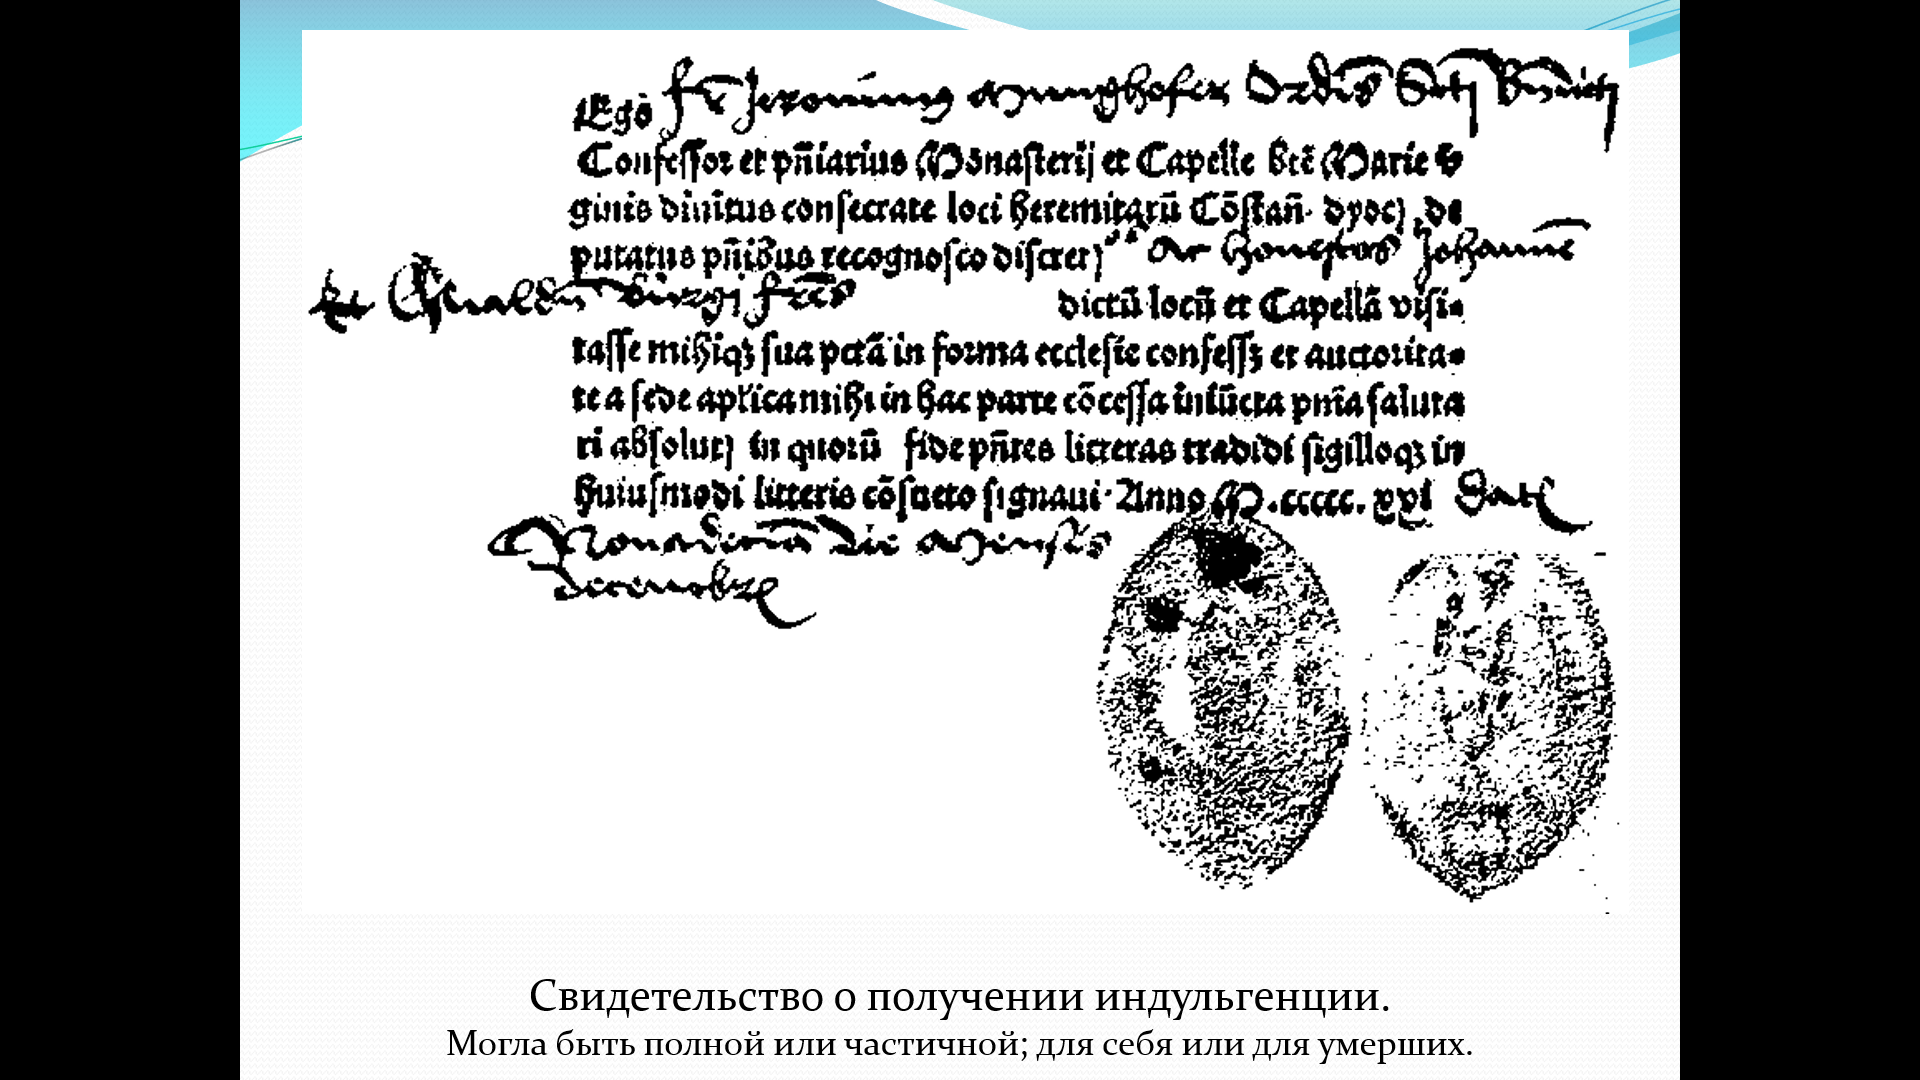 Egō fr̄ Jeronimus Munghofer Ordīs Sctj Bn̄dictj
Confeſſor et pn̄iarius Mōnaſterij et Capelle btē Marie
ginis diuitus conſecrate loci heremitarū Cōſtan̄. dyoc) de
putatus pn̄ibus recognoſco diſcret) Ac honestos Johannē
et Oswaldū fr̄es dictū locū et Capellā viſi-
taſſe mihiqȝ ſua pctā in forma eccleſie confeſſȝ et auctorita-
te a ſede apl̄ica mihi in hac parte cōceſſa iniūcta pnīa ſaluta
ri abſolut) in quorū fide pn̄tes litteras tradidi ſigilloqȝ in
huiuſmodi litteris cōſueto ſignaui. Anno M.ccccc. xxi Dat
die Mensis
decembre
Свидетельство о получении индульгенции.
Могла быть полной или частичной; для себя или для умерших.